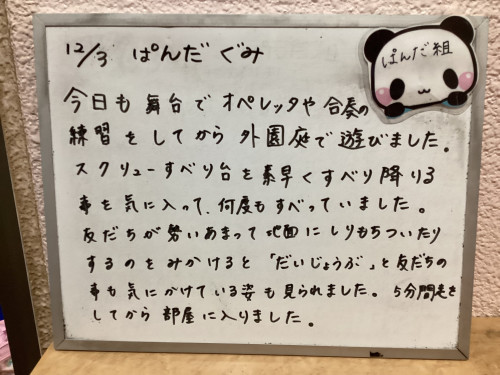 12/3 ぱんだ ぐみ
ぱんだ組
今日も 舞台で オペレッタや 合奏の
練習をしてから 外園庭で 遊びました。
スクリューすべり台を 素早く すべり降りる
事を気に入って、何度も すべって いました。
友だちが 勢いあまって 地面に しりもちついたり
するのを みかけると 「だいじょうぶ」と 友だちの
事も 気にかけている 姿も 見られました。 5分間走を
してから 部屋に入りました。